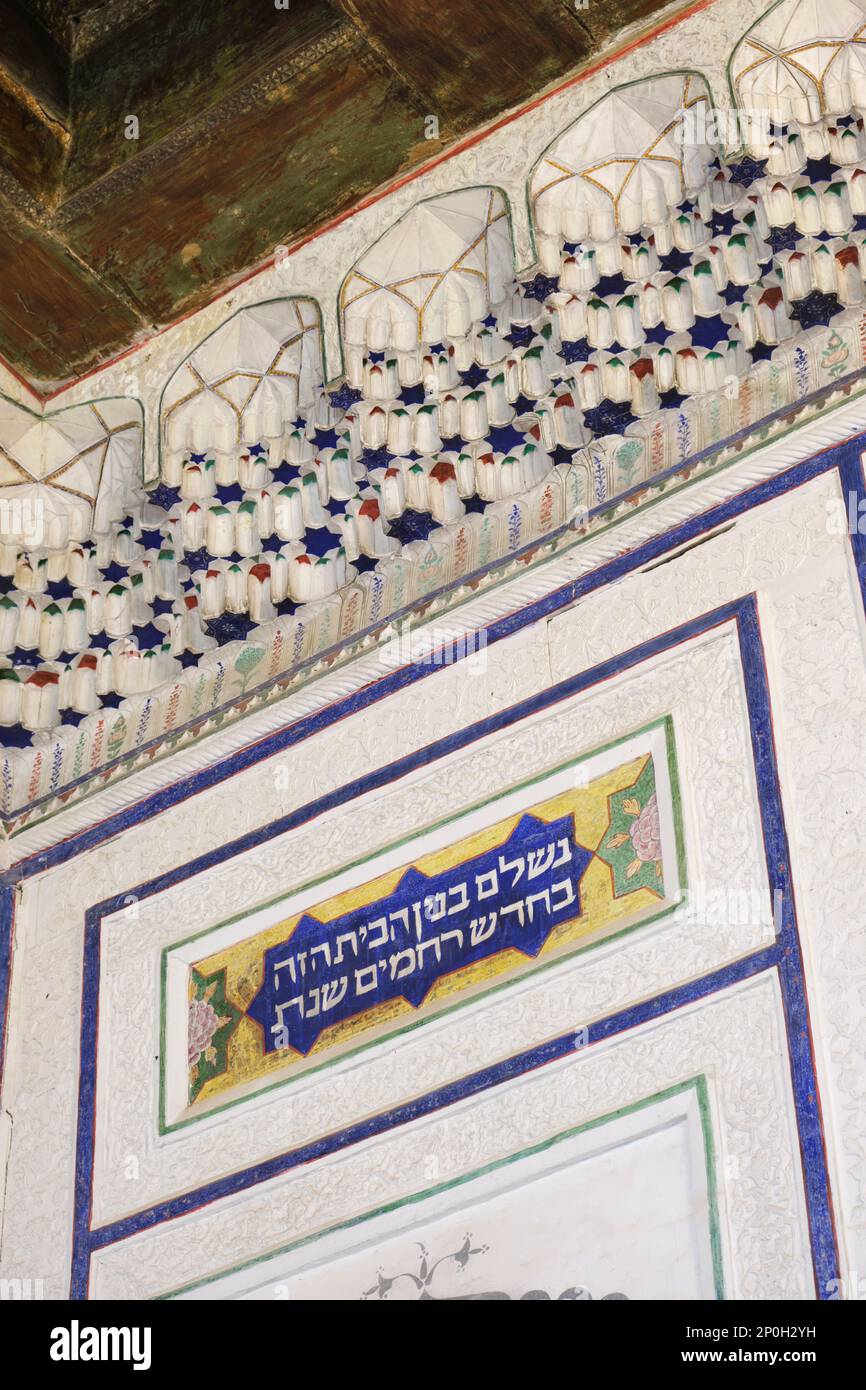 נשלם בנין הבית הזה
בחדש רחמים שנת
alamy
Image ID: 2P0H2YH
www.alamy.com